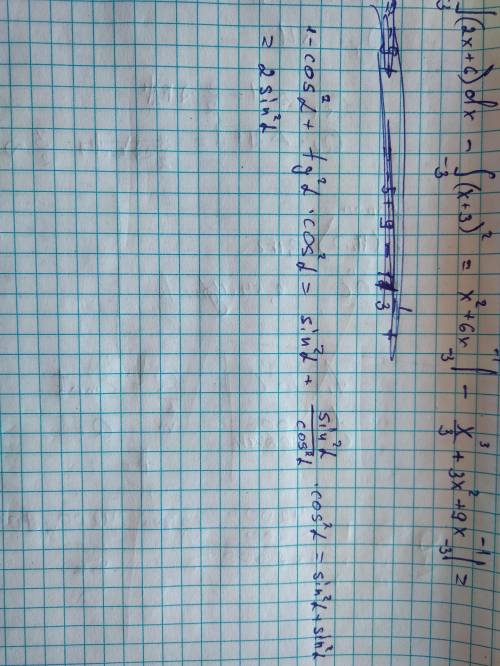 ∫₋₃ (2x+6) dx - ∫₋₃ (x+3)² = x²+6x |₋₃⁻¹ - x³/3 + 3x² + 9x |₋₃⁻¹ =
1-cos²α + tg²α · cos²α = sin²α + sin²α/cos²α · cos²α = sin²α + sin²α
= 2 sin²α